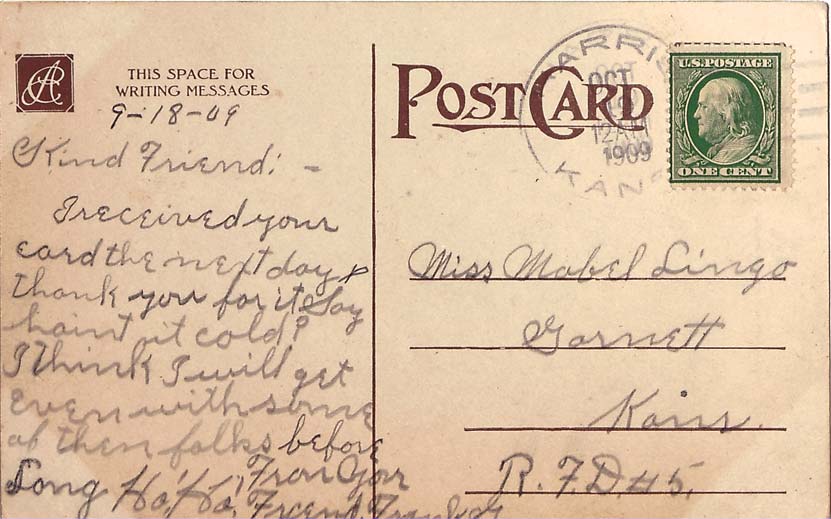 THIS SPACE FOR
WRITING MESSAGES
9-18-09
Kind Friend: -
I received your
card the next day &
thank you for it Say
haint it cold?
I think I will get
even with some
of them folks before
Long Ho, Ho, From Your
Friend
POST CARD
HARRIS
OCT
12AM
1909
KANS
U.S. POSTAGE
ONE CENT
Miss Mabel Lingo
Garnett
Kans.
R.F.D. #5.